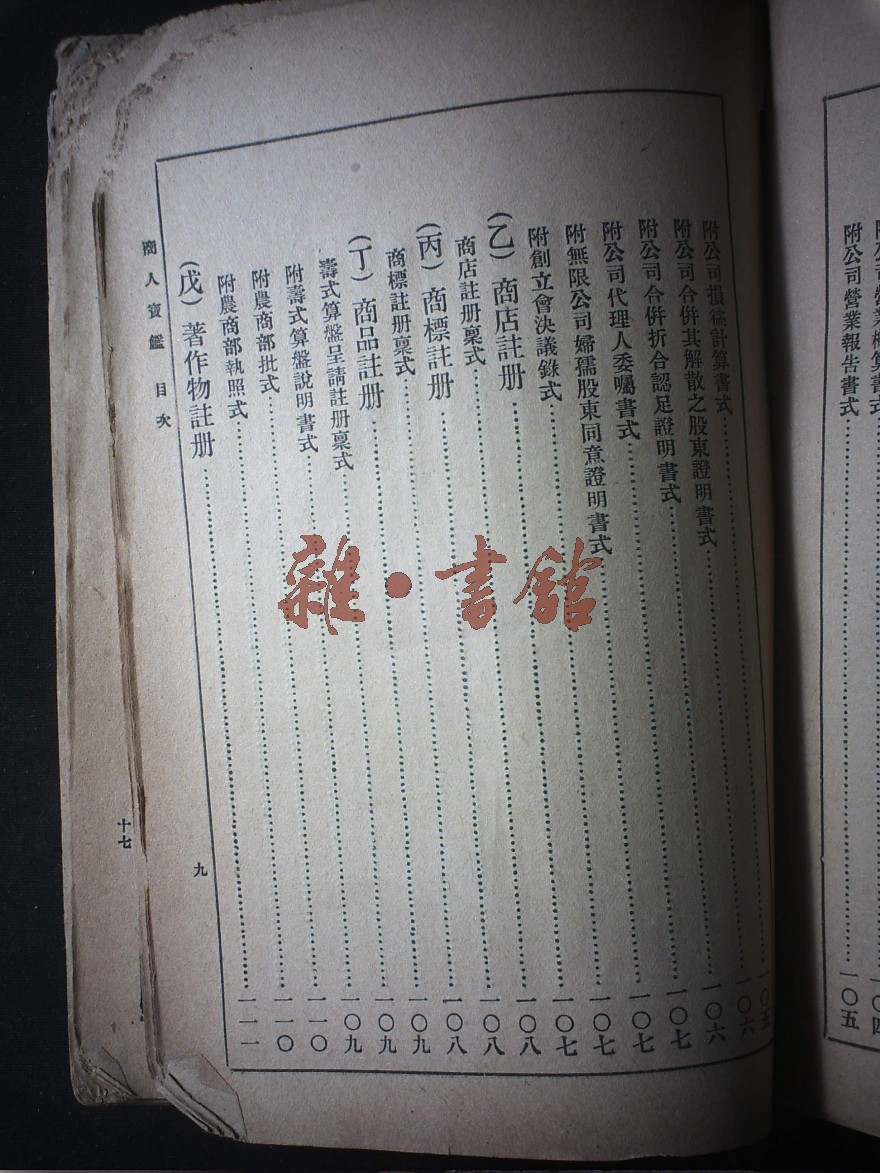 附公司營業報告書式…一〇五
附公司損益計算書式…一〇五
附公司合併其解散之股東證明書式…一〇六
附公司合併折合認足證明書式…一〇六
附公司代理人委囑書式…一〇七
附無限公司婦孺股東同意證明書式…一〇七
附創立會決議錄式…一〇七
(乙)商店註册…一〇七
商店註册稟式…一〇八
(丙)商標註册…一〇八
商標註册稟式…一〇八
(丁)商品註册…一〇九
壽式算盤呈請註册稟式…一〇九
附壽式算盤說明書式…一〇九
附農商部批式…一一〇
附農商部執照式…一一〇
(戊)著作物註册…一一一
商人寶鑑 目次
九
十七
雜·書館